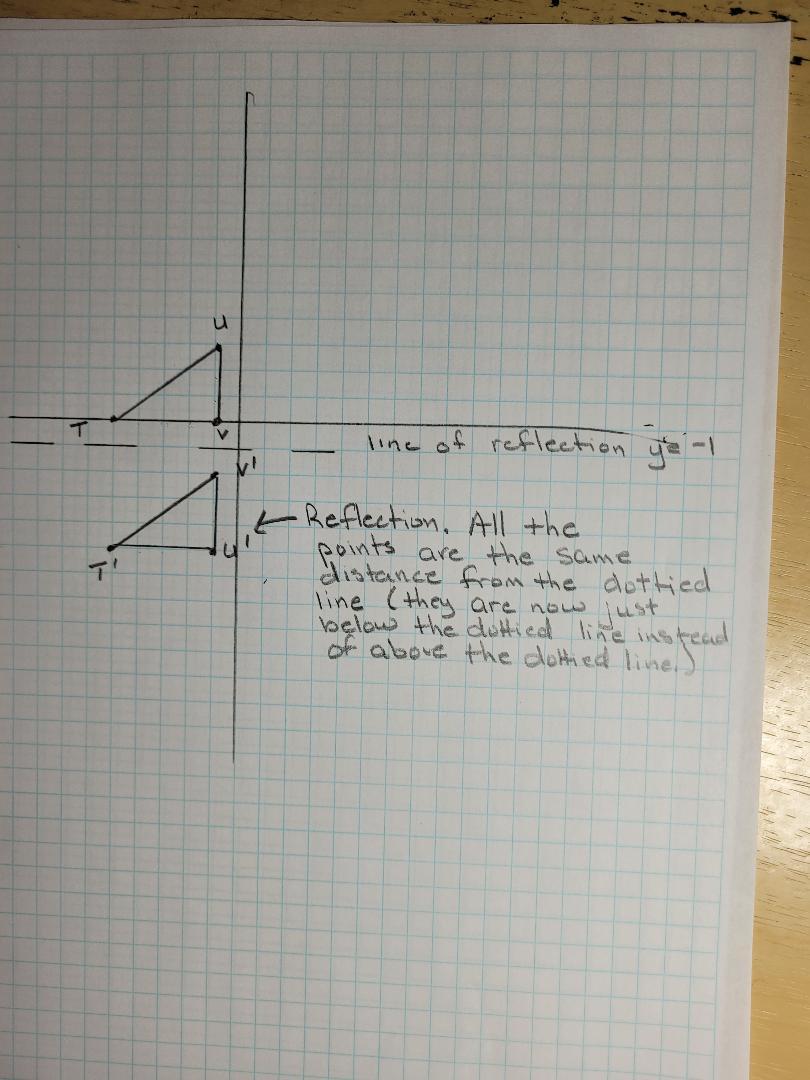 U
T
V
line of reflection y=-1
V'
T'
U'
Reflection. All the
points are the same
distance from the dottied
line (they are now just
below the dottied line instead
of above the dottied line.)